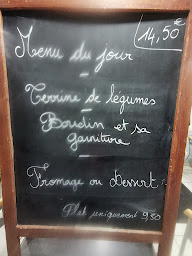 14,50€
Menu du jour
-
Terrine de légumes
-
Boudin et sa
garniture
-
Fromage ou Dessert
Plat uniquement 9,50